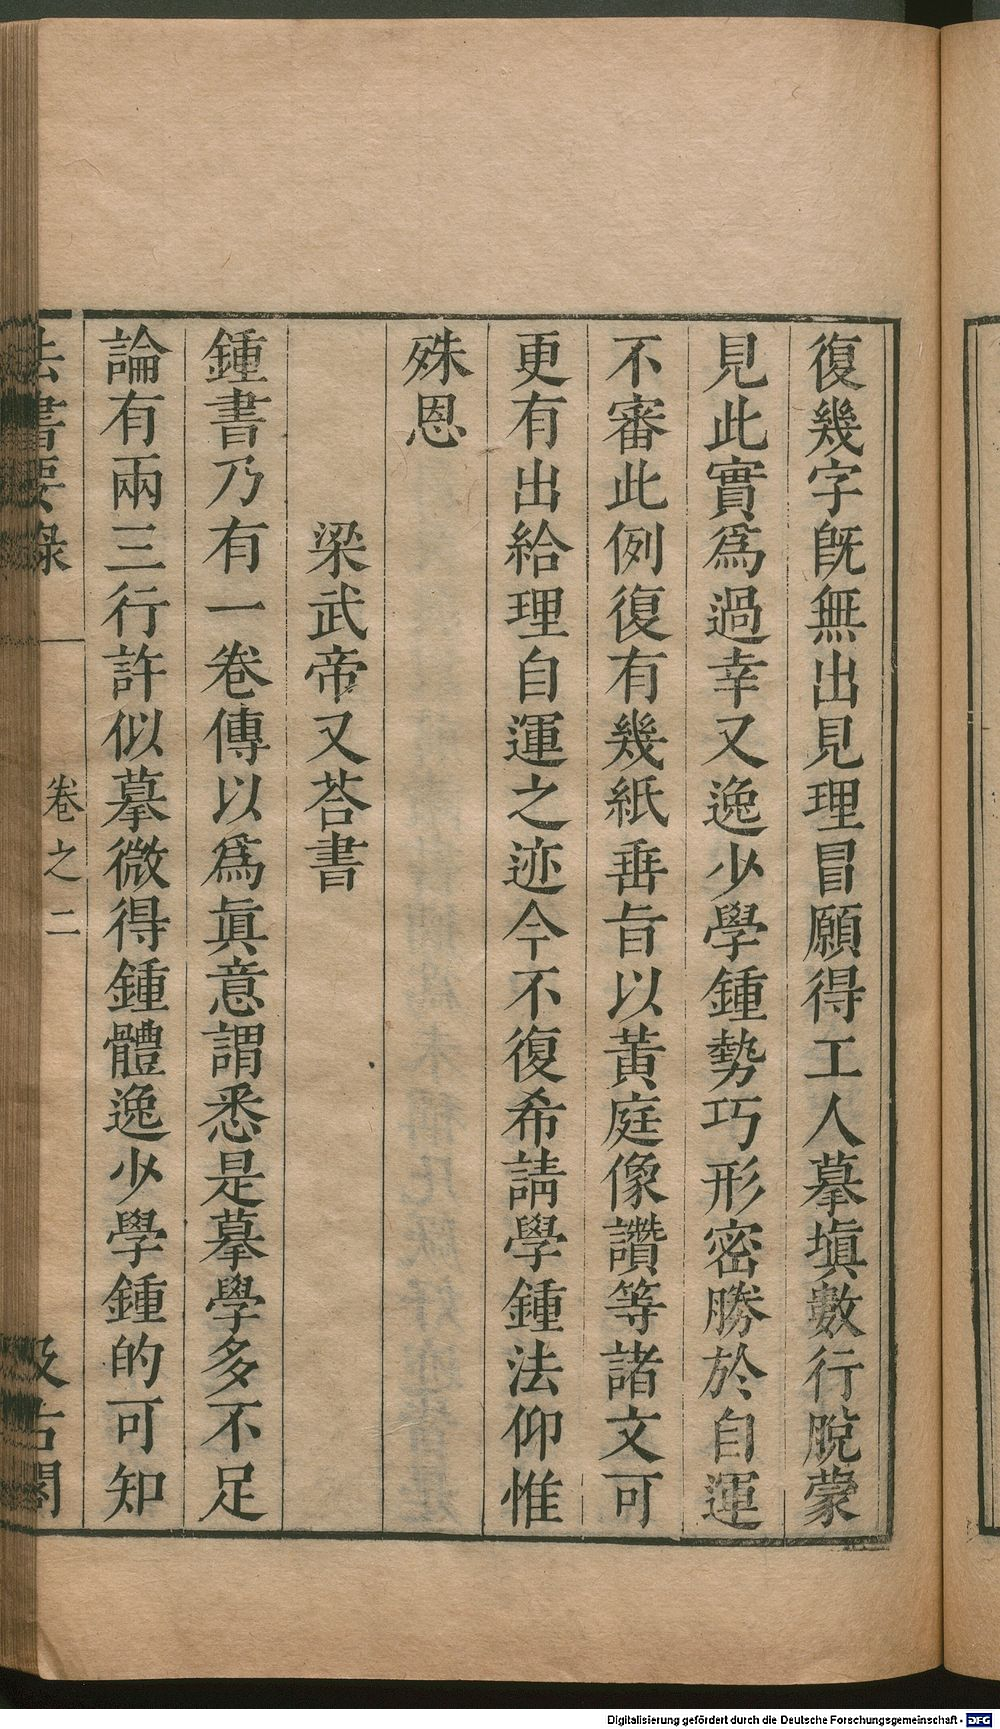 復幾字旣無出見理冒願得工人摹塡數行脫蒙
見此實爲過幸又逸少學鍾勢巧形密勝於自運
不審此例復有幾紙垂旨以黃庭像讚等諸文可
更有出給理自運之迹今不復希請學鍾法仰惟
殊恩
梁武帝又荅書
鍾書乃有一卷傳以爲眞意謂悉是摹學多不足
論有兩三行許似摹微得鍾體逸少學鍾的可知
法書要錄 卷之二 汲古閣
Digitalisierung gefördert durch die Deutsche Forschungsgemeinschaft - DFG